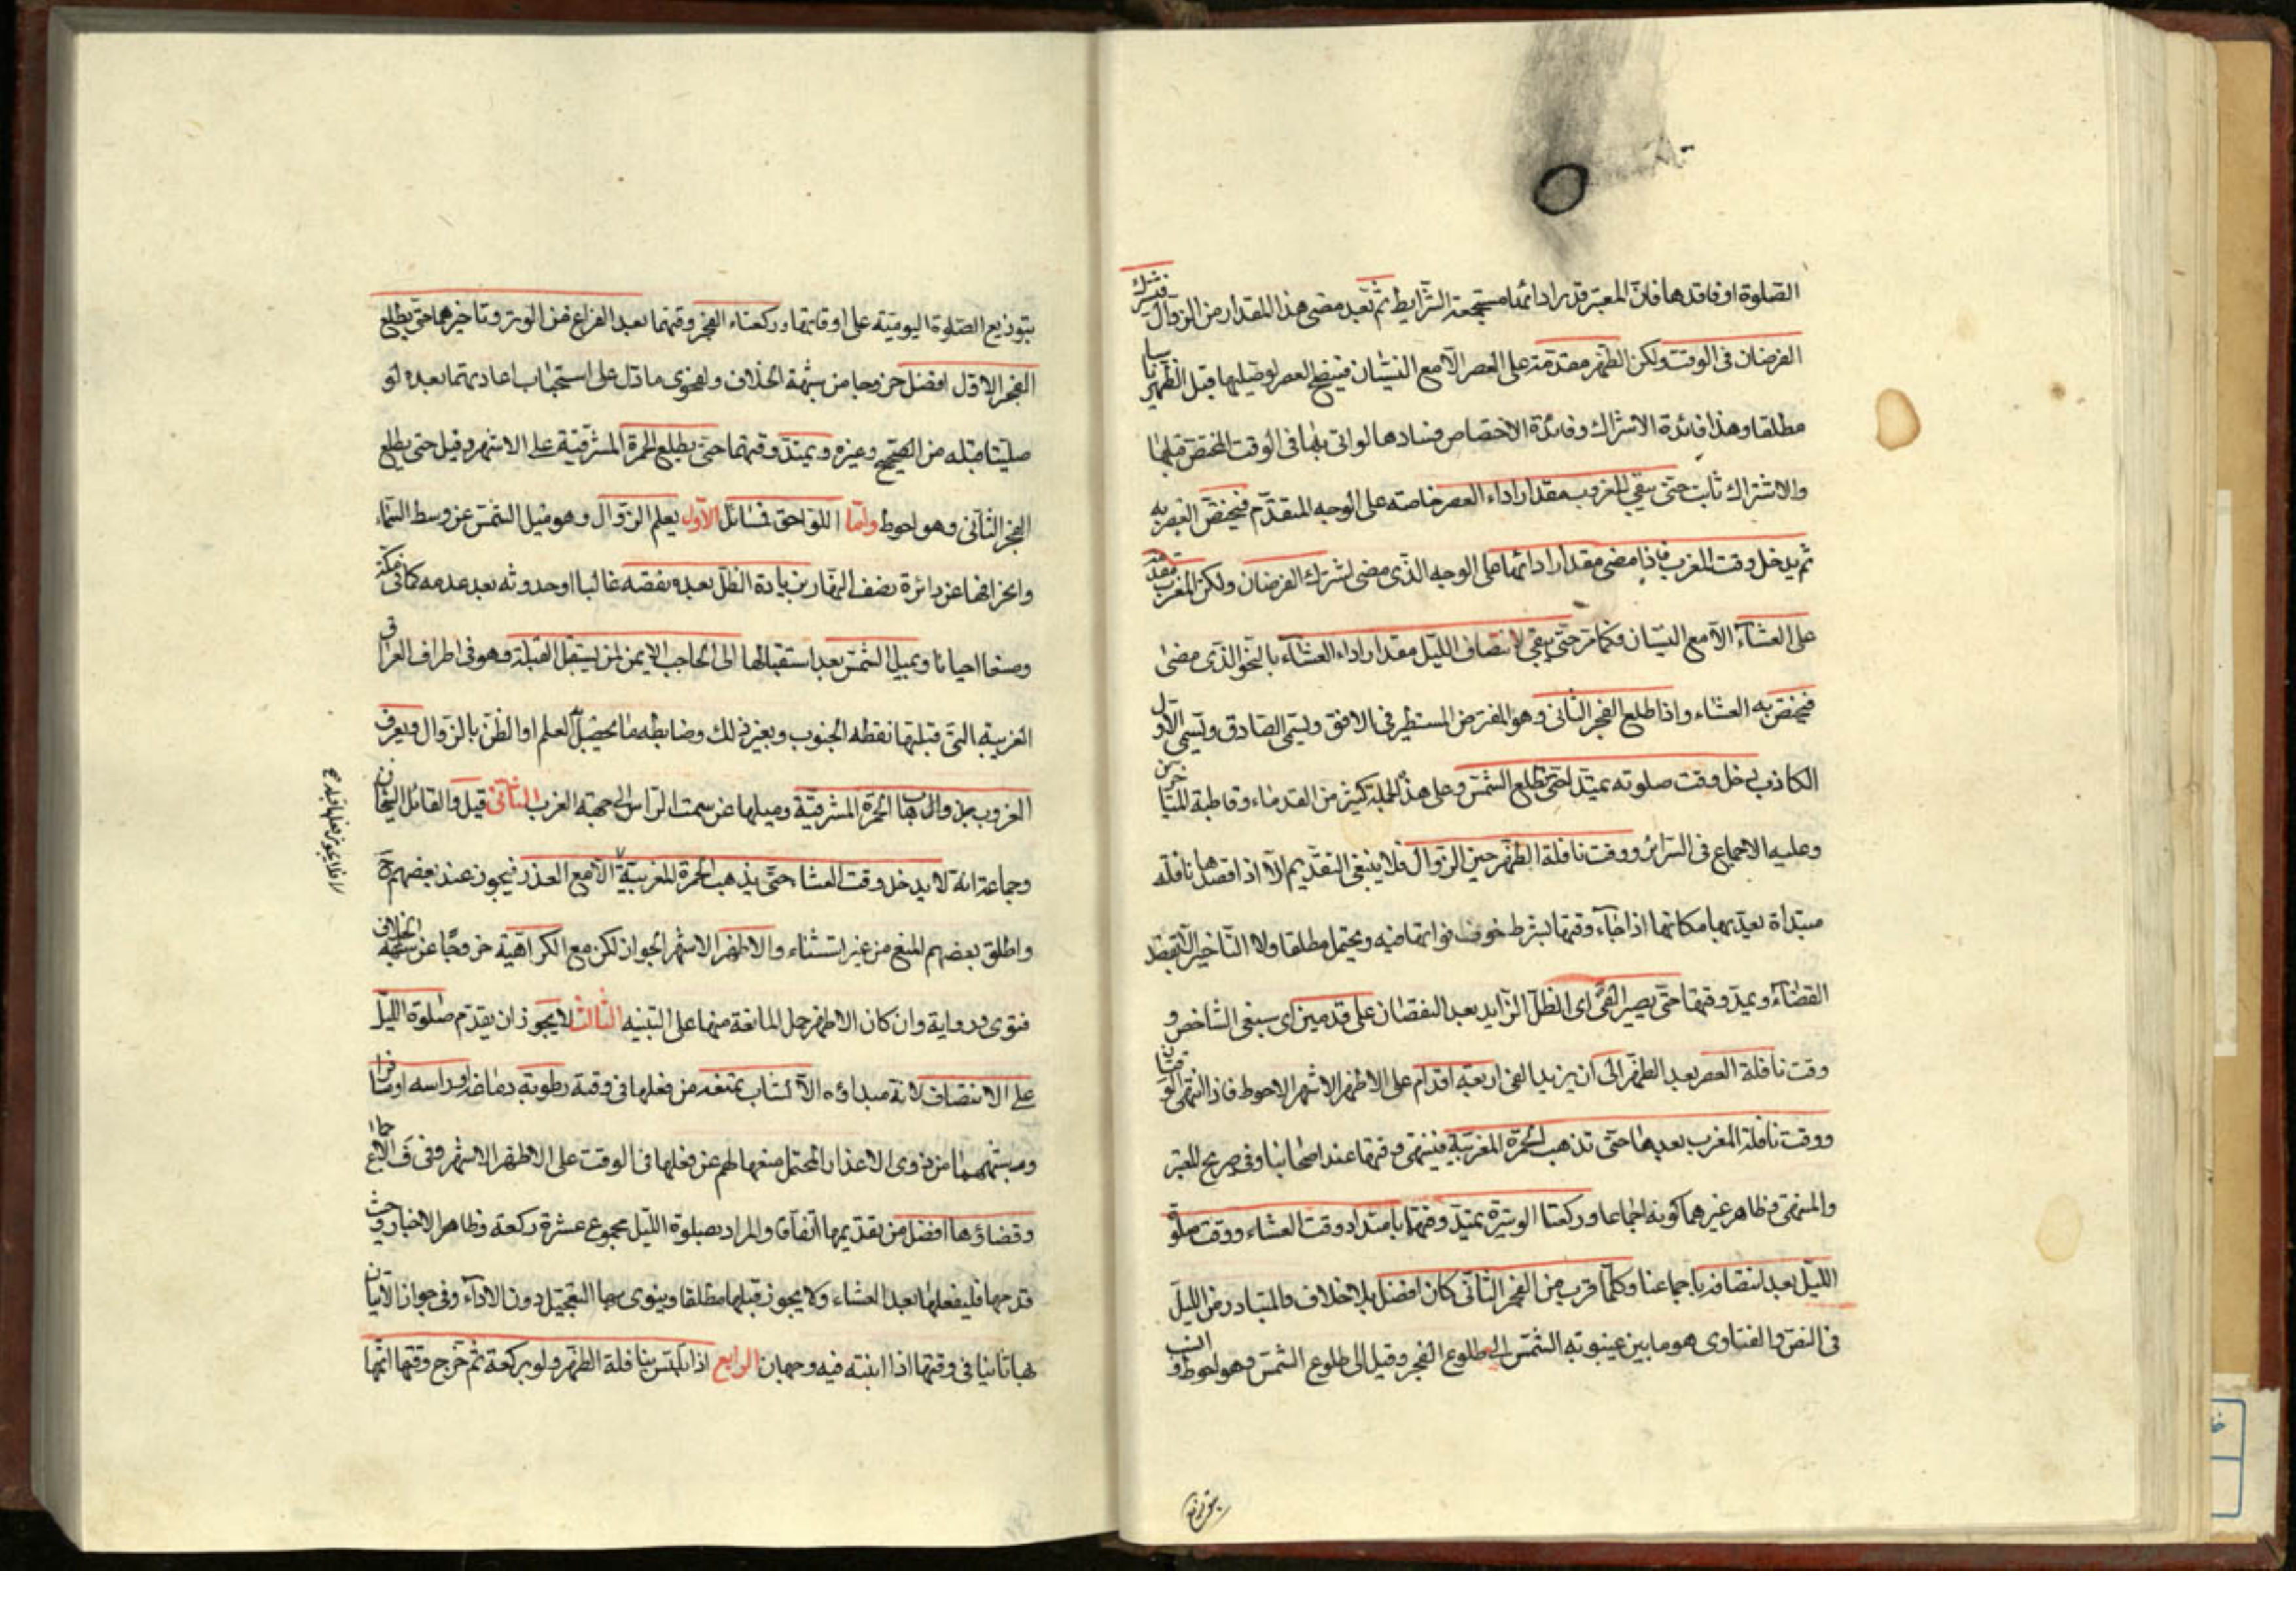 الصلوة او فاقدها فان المعتبر قدر ادائها مستجمعة الشرايط ثم بعد مضى هذا المقدار من الزوال فيشترك
الفرضان فى الوقت ولكن الظهر مقدمة على العصر الا مع النسيان فيصح العصر لو صليها قبل الظهر ناسيا
مطلقا وهذا فائدة الاشتراك وفائدة الاختصاص فسادها لو اتى بها فى الوقت المختص قبلها
والاشتراك ثابت حتى يبقى للغروب مقدار اداء العصر خاصته على الوجه المتقدم فيختص العصر به
ثم يدخل وقت المغرب فاذا مضى مقدار ادائها على الوجه الذى مضى اشترك الفرضان ولكن المغرب مقدمة
على العشاء الا مع النسيان فكما مر حتى يبقى لانتصاف الليل مقدار اداء العشاء بالنحو الذى مضى
فيختص به العشاء واذا طلع الفجر الثانى وهو المفترض المستطير فى الافق ويسمى الصادق ويسمى الاول
الكاذب يدخل وقت صلوته يمتد حتى تطلع الشمس وعلى هذا الجملة كثير من القدماء وقاطبة المتاخرين
وعليه الاجماع فى السرائر ووقت نافلة الظهر حين الزوال فلا ينبغى التقديم الا اذا قصدها نافلة
مبتداة يعيد بها مكانها اذا جاء وقتها بشرط خوف فواتها فيه ويحتمل مطلقا ولا التاخير الا بقصد
القضاء ويمتد وقتها حتى يصير الفئ اى الظل الزايد بعد النقصان على قدمين اى سبعى الشاخص و
وقت نافلة العصر بعد الظهر الى ان يزيد الفئ اربعة اقدام على الاظهر الاشهر الاحوط فاذا انتهى الوقتان
ووقت نافلة المغرب بعدها حتى تذهب الحمرة المغربية فينتهى وقتها عند اصحابنا وفى صريح المعتبر
والمنتهى وظاهر غيرهما كونه اجماعا وركعتا الوتيرة يمتد وقتها بامتداد وقت العشاء ووقت صلوة
الليل بعد انتصافه باجماعنا وكلما قرب من الفجر الثانى كان افضل بلا خلاف والمتبادر من الليل
فى النص والفتاوى هو ما بين غيبوبته الشمس الى طلوع الفجر وقيل الى طلوع الشمس وهو احوط وانسب
بتوزيع
بتوزيع الصلوة اليومية على اوقاتها وركعتاء الفجر وقتهما بعد الفراغ من الوتر وتاخيرها حتى يطلع
الفجر الاول افضل خروجا من شبهة الخلاف ولفحوى ما دل على استحباب اعادتهما بعده لو
صليتا قبله من الصحيح وغيره ويمتد وقتهما حتى يطلع الحمرة المشرقية على الاشهر وقيل حتى يطلع
الفجر الثانى وهو احوط واما اللواحق فمسائل الاول يعلم الزوال وهو ميل الشمس عن وسط السماء
وانحرافها عن دائرة نصف النهار بزيادة الظل بعد نقصه غالبا او حدوثه بعد عدمه كما فى مكة
وصنعا احيانا وبميل الشمس بعد استقبالها الى الحاجب الايمن لمن يستقبل القبلة وهو فى اطراف العراق
الغربية التى قبلتها نقطة الجنوب وبغير ذلك وضابطه ما يحصل به العلم او الظن بالزوال ويعرف
الغروب بزوال وذهاب الحمرة المشرقية وميلها عن سمت الراس الى جهة الغرب الثانى قيل والقائل الشيخان
وجماعة انه لا يدخل وقت العشاء حتى يذهب الحمرة المغربية الا مع العذر فيجوز عند بعضهم ح
واطلق بعضهم المنع من غير استثناء والاظهر الاشهر الجواز لكن مع الكراهية خروجا عن شبهة الخلاف
فتوى ورواية وان كان الاظهر حمل المانعة منها على التقية الثالث لا يجوز ان يقدم صلوة الليل
على الانتصاف لانه مبداؤه الا لشاب يمنعه من فعلها فى وقته رطوبة دماغه او راسه او مسافر
وقضاؤها افضل من تقديمها اتفاقا والمراد بصلوة الليل مجموع عشرة ركعة وظاهر الاخبار وحيث
قدمها فليفعلها بعد العشاء ولا يجوز قبلها مطلقا وينوى بها التعجيل دون الاداء وفى جواز الاتيان
بها ثانيا فى وقتها اذا انتبه فيه وجهان الرابع اذا تلبس بنافلة الظهر ولو بركعة ثم خرج وقتها اتمها